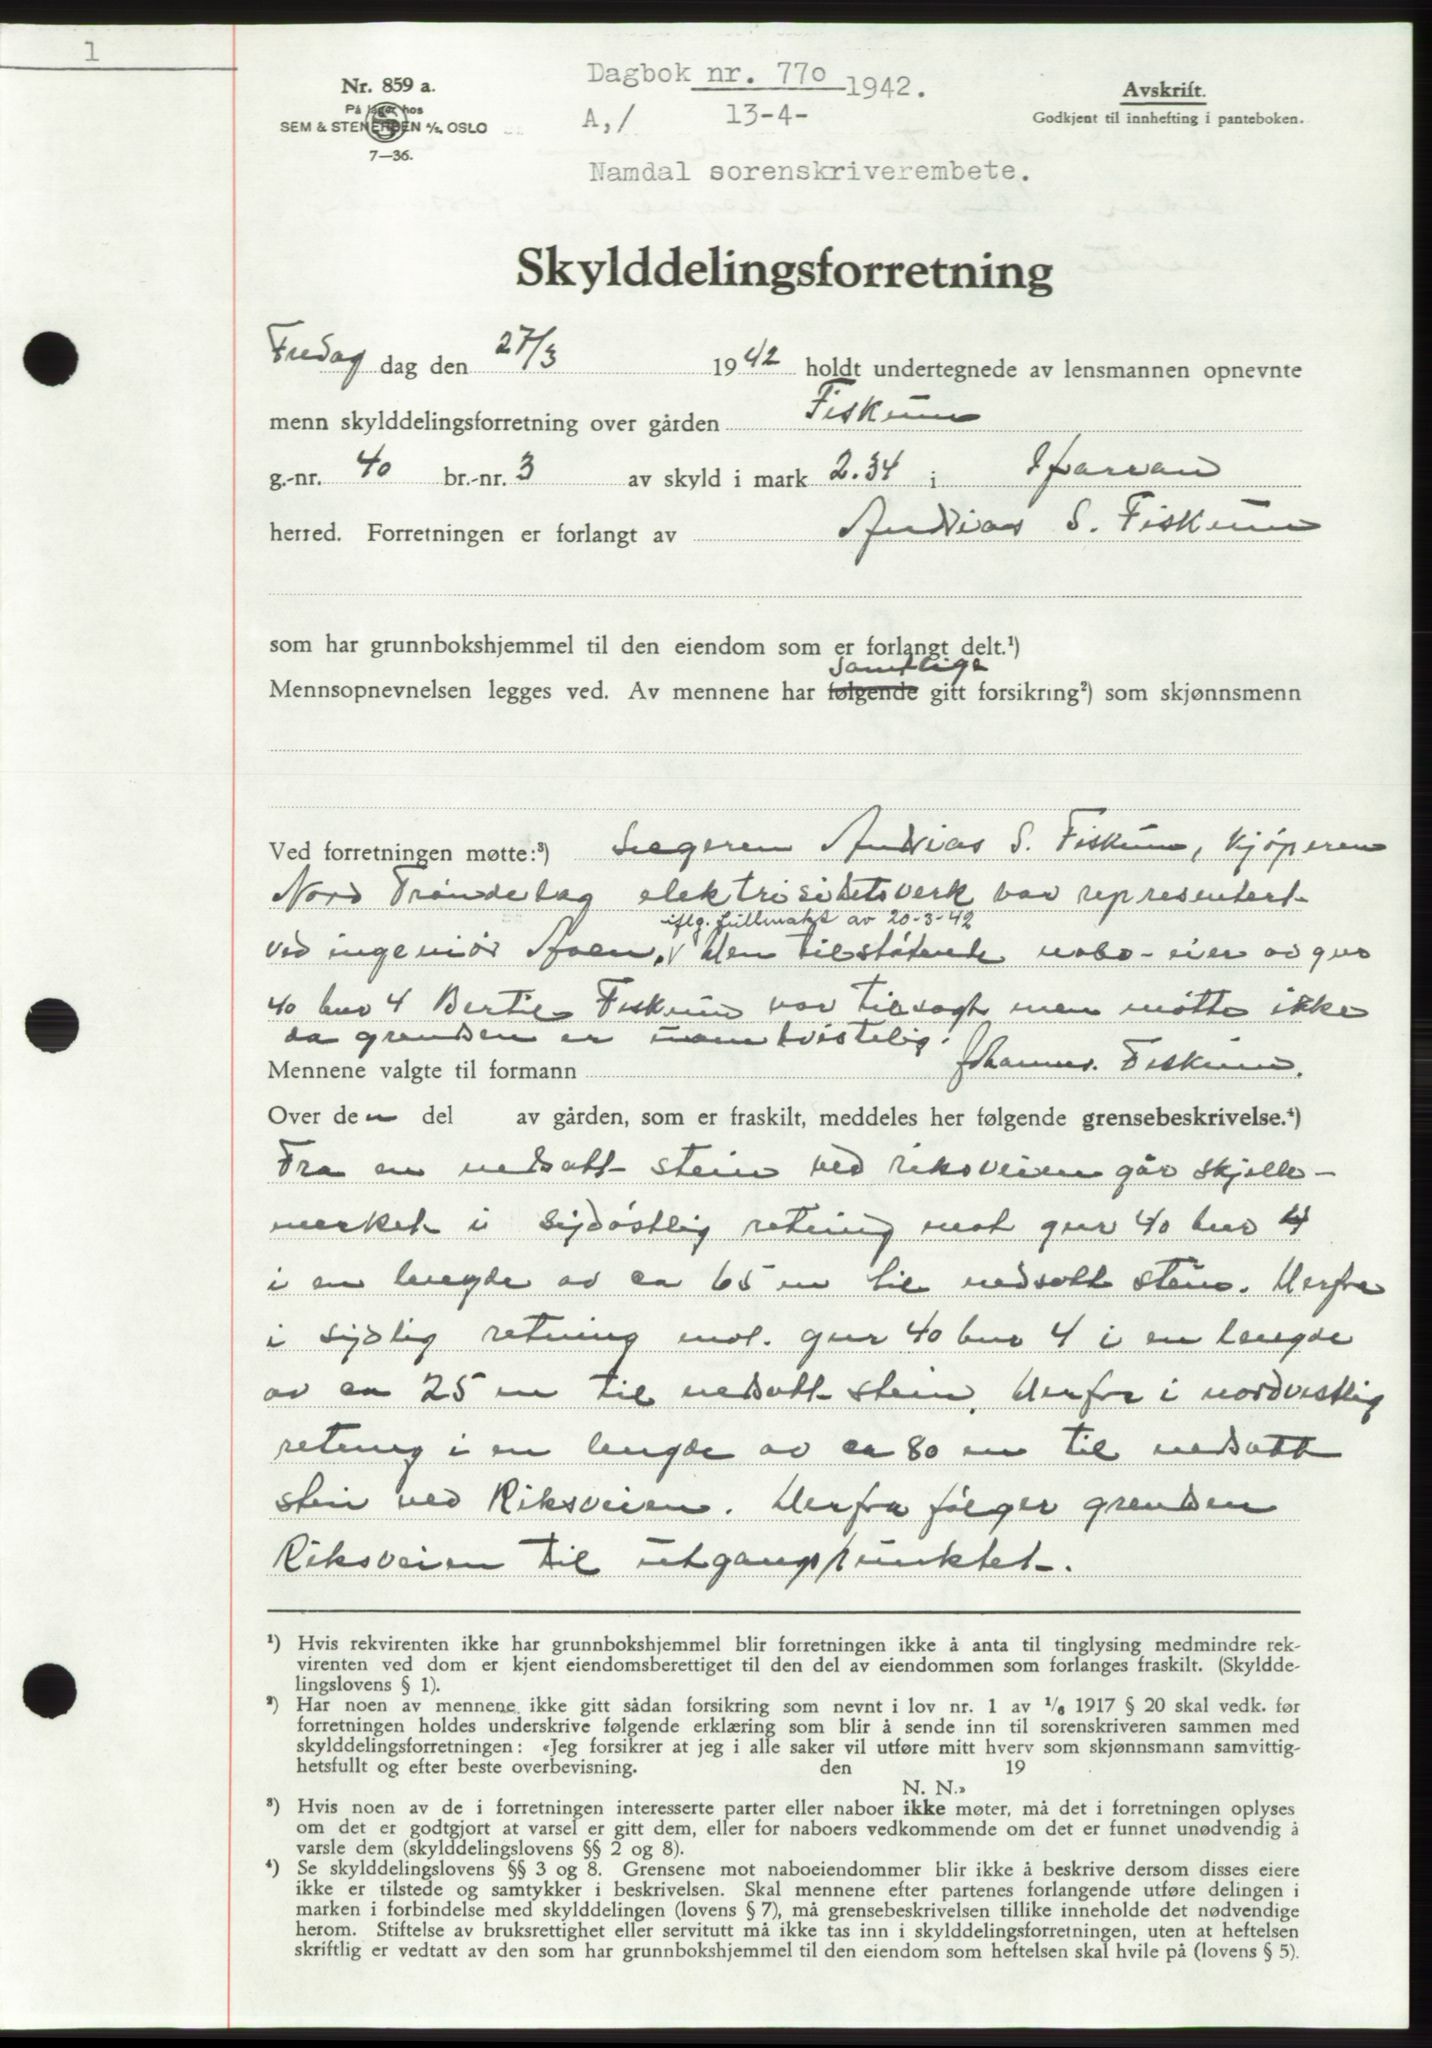 1
Nr. 859 a.
På lager hos
SEM & STENERSEN A/S, OSLO
7—36.
Dagbok nr. 770 1942.
A,/ 13-4-
Namdal sorenskriverembete.
Avskrift.
Godkjent til innhefting i panteboken.
Skylddelingsforretning
Fredag dag den 27/3 1942 holdt undertegnede av lensmannen opnevnte
menn skylddelingsforretning over gården Fiskum
g.-nr. 40 br.-nr. 3 av skyld i mark 2.34 i
herred. Forretningen er forlangt av Andrias S. Fiskum
som har grunnbokshjemmel til den eiendom som er forlangt delt.¹)
samtlige
Mennsopnevnelsen legges ved. Av mennene har følgende gitt forsikring²) som skjønnsmenn
Ved forretningen møtte:³) Selgeren Andrias S. Fiskum, kjøperen
Nord Trøndelag elektrisitetsverk var representert
iflg. fullmakt av 20-3-42
ved ingeniør Moen, den tilstøtende nabo-eier av gnr
40 bnr 4 Bertil Fiskum var tilsagt men møtte ikke
da grensen er uomtvistelig.
Mennene valgte til formann Johannes Fiskum.
Over den del av gården, som er fraskilt, meddeles her følgende grensebeskrivelse.⁴)
Fra en nedsatt stein ved riksveien går skjelle-
merket i sydøstlig retning mot gnr 40 bnr 4
i en lengde av ca 65 m til nedsatt stein. Herfra
i sydlig retning mot gnr 40 bnr 4 i en lengde
av ca 25 m til nedsatt stein. Herfra i nordvestlig
retning i en lengde av ca 80 m til nedsatt
stein ved Riksveien. Herfra følger grensen
Riksveien til utgangspunktet.
¹) Hvis rekvirenten ikke har grunnbokshjemmel blir forretningen ikke å anta til tinglysing medmindre rek-
virenten ved dom er kjent eiendomsberettiget til den del av eiendommen som forlanges fraskilt. (Skyldde-
lingslovens § 1).
²) Har noen av mennene ikke gitt sådan forsikring som nevnt i lov nr. 1 av 1/6 1917 § 20 skal vedk. før
forretningen holdes underskrive følgende erklæring som blir å sende inn til sorenskriveren sammen med
skylddelingsforretningen: «Jeg forsikrer at jeg i alle saker vil utføre mitt hverv som skjønnsmann samvittig-
hetsfullt og efter beste overbevisning. den 19
N. N.»
³) Hvis noen av de i forretningen interesserte parter eller naboer ikke møter, må det i forretningen oplyses
om det er godtgjort at varsel er gitt dem, eller for naboers vedkommende om det er funnet unødvendig å
varsle dem (skylddelingslovens §§ 2 og 8).
⁴) Se skylddelingslovens §§ 3 og 8. Grensene mot naboeiendommer blir ikke å beskrive dersom disses eiere
ikke er tilstede og samtykker i beskrivelsen. Skal mennene efter partenes forlangende utføre delingen i
marken i forbindelse med skylddelingen (lovens § 7), må grensebeskrivelsen tillike inneholde det nødvendige
herom. Stiftelse av bruksrettighet eller servitutt må ikke tas inn i skylddelingsforretningen, uten at heftelsen
skriftlig er vedtatt av den som har grunnbokshjemmel til den eiendom som heftelsen skal hvile på (lovens § 5).